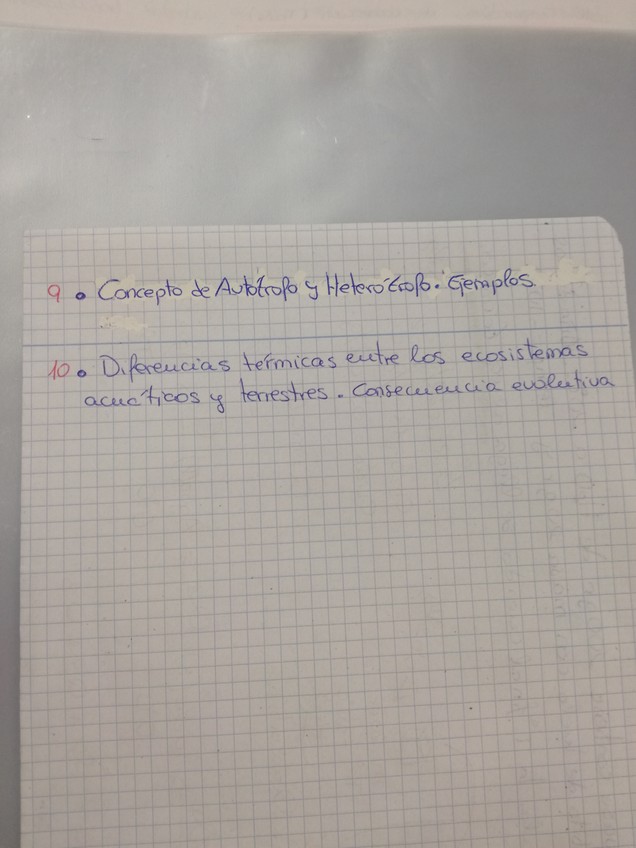 9. Concepto de Autótrofo y Heterótrofo. Ejemplos.
10. Diferencias térmicas entre los ecosistemas
acuáticos y terrestres. Consecuencia evolutiva